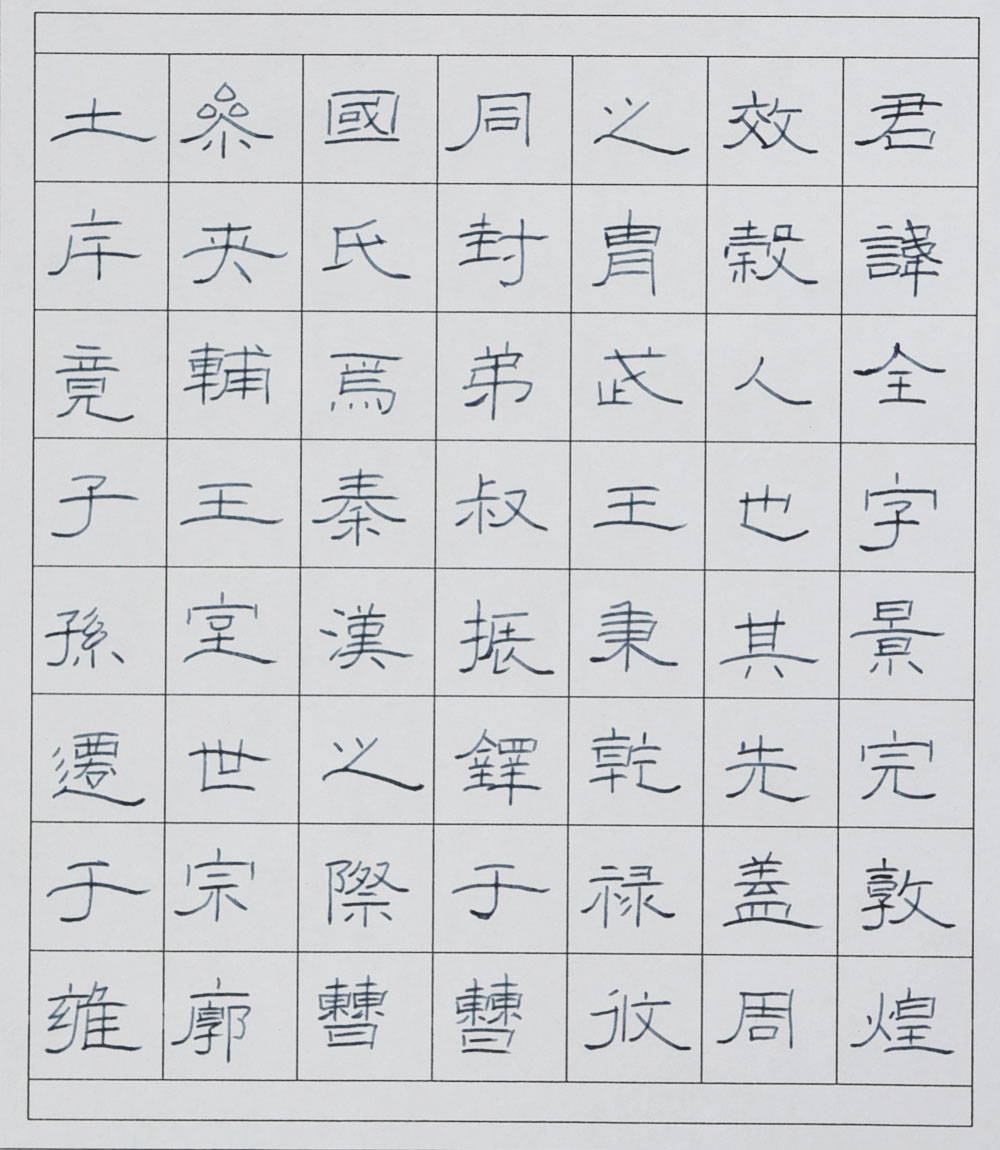 君諱全字景完敦煌
效穀人也其先蓋周
之胄武王秉乾禄攸
同封弟叔振鐸于曹
國氏焉秦漢之際曹
參夾輔王室世宗廓
土斥竟子孫遷于雍